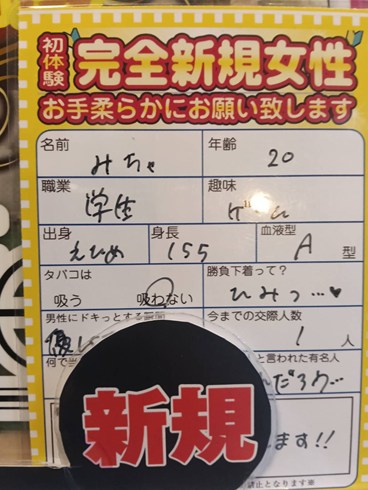 初体験
完全新規女性
お手柔らかにお願い致します
名前 みちゃ 年齢 20
職業 学生 趣味 ゲーム
出身 えひめ 身長 155 血液型 A 型
タバコは 吸う 吸わない 勝負下着って? ひみつ…♥
男性にドキっとする瞬間 今までの交際人数 1 人
優し
何で当 と言われた有名人
んだろう…
新規
ます!!
禁止となります※